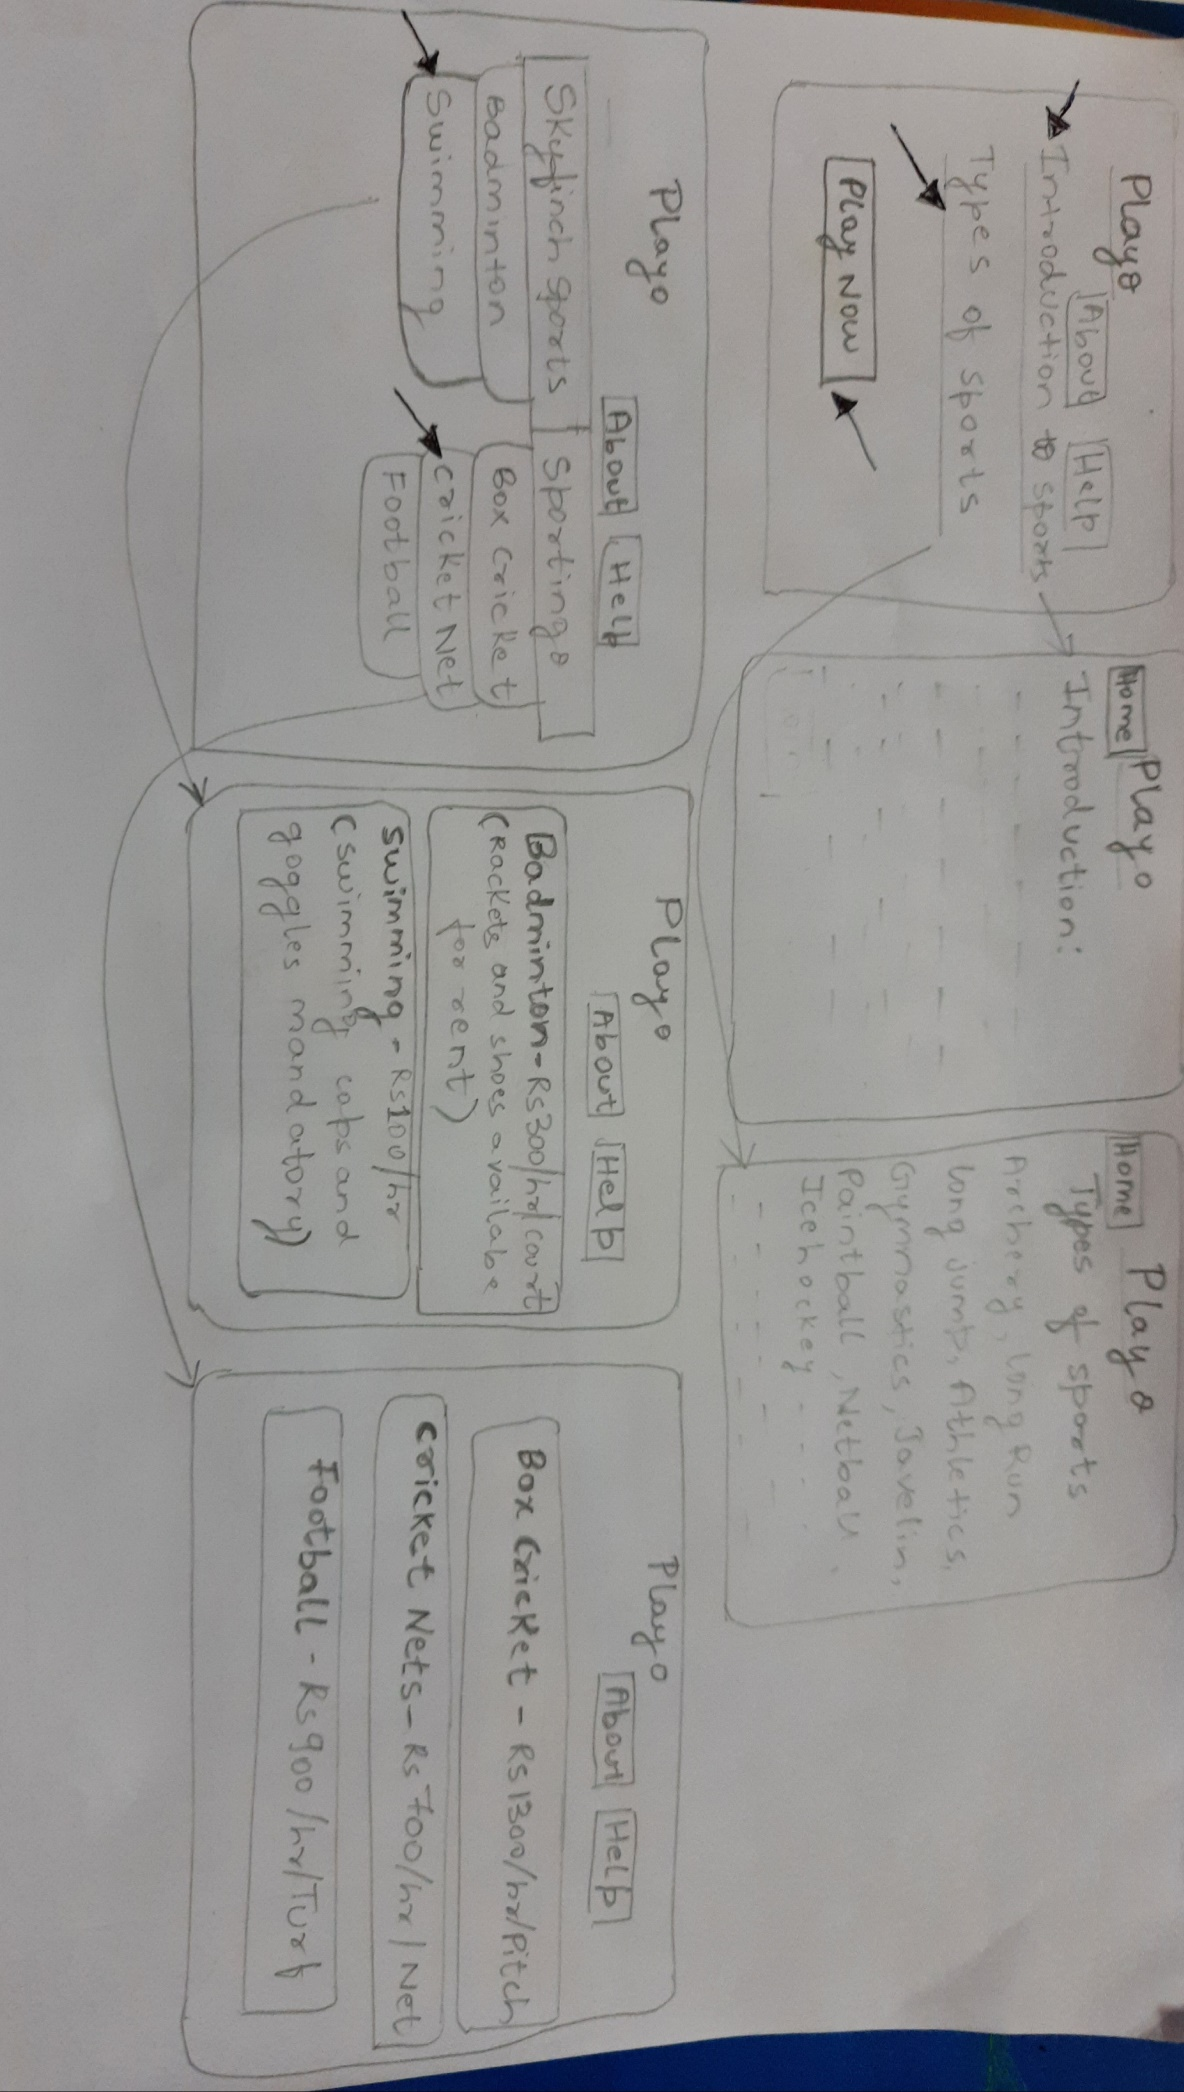 Playo
About Help
Introduction to sports
Types of sports
Play Now
Playo
Home
Introduction:
Playo
Home
Types of sports
Archery, Long Run
Long jump, Athletics,
Gymnastics, Javelin,
Paintball, Netball,
Icehockey
Playo
About Help
Skyfinch Sports
Badminton
Swimming
Sportingo
Box cricket
cricket Net
Football
Playo
About Help
Badminton-Rs300/hr/court
(Rackets and shoes availabe
for rent)
Swimming - Rs100/hr
(swimming caps and
goggles mandatory)
Playo
About Help
Box Cricket - Rs1300/hr/Pitch
Cricket Nets - Rs700/hr/Net
Football - Rs900/hr/Turf